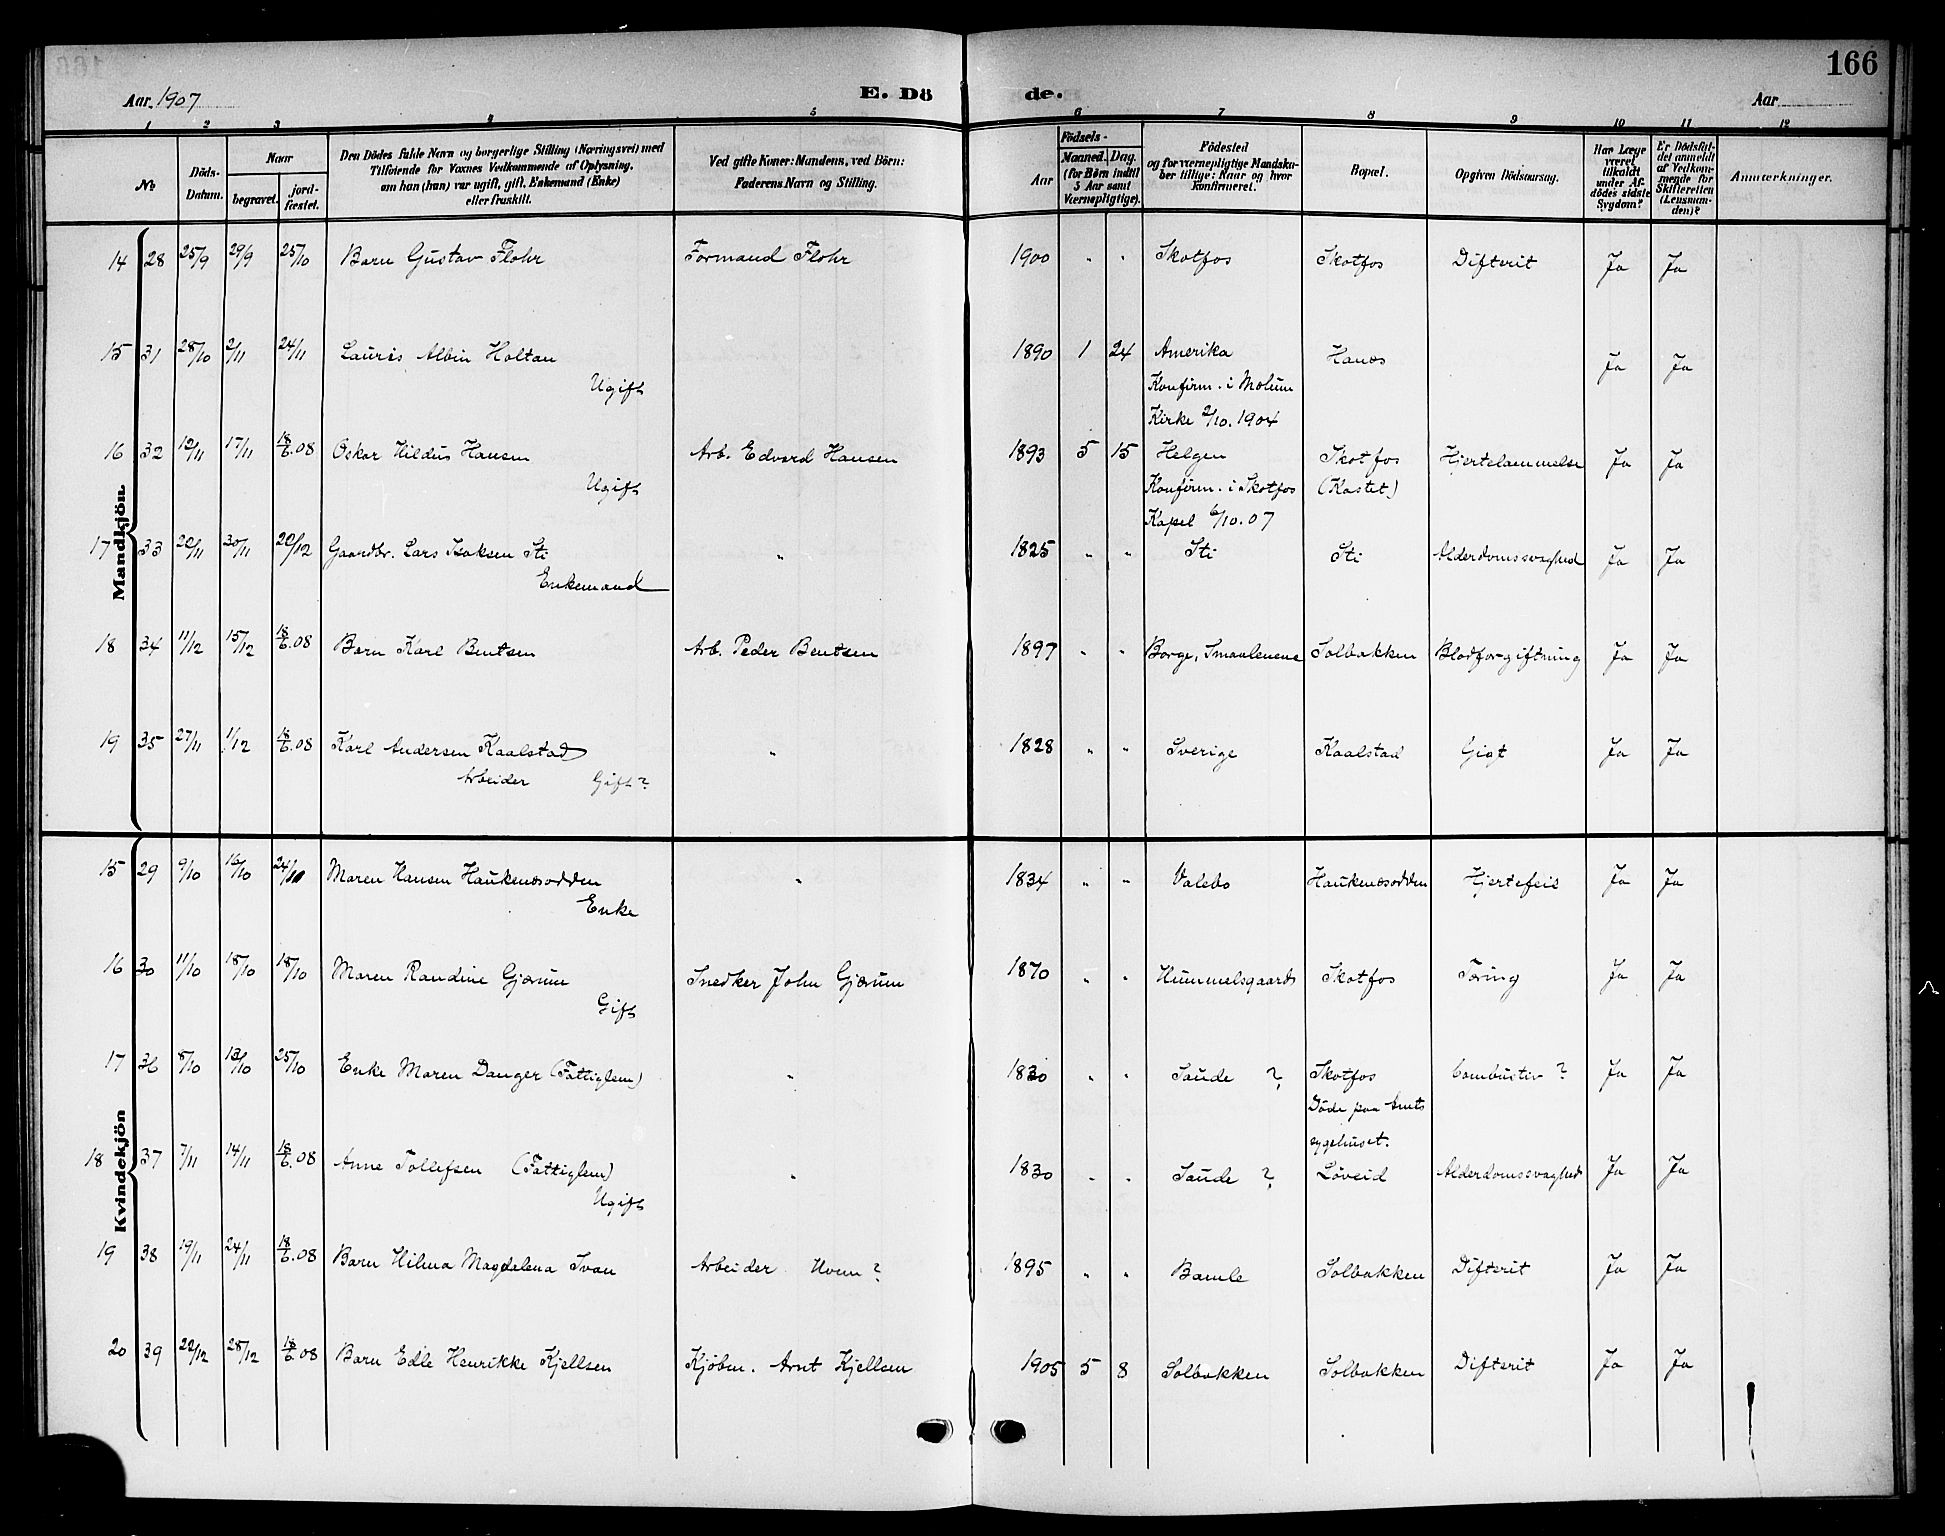 166
Aar 1907
E. Dö
de.
Aar
1 2 3 4 5 6 7 8 9 10 11 12
No
Döds-
Datum.
Naar
begravet.
jord-
fæstet.
Den Dödes fulde Navn og borgerlige Stilling (Næringsvei) med
Tilföiende for Voxnes Vedkommende af Oplysning,
om han (hun) var ugift, gift, Enkemand (Enke)
eller fraskilt.
Ved gifte Koner: Mandens, ved Börn:
Faderens Navn og Stilling.
Aar
Födsels-
Maaned. Dag.
(for Börn indtil
5 Aar samt
Værnepligtige).
Födested
og for værnepligtige Mandska-
ber tillige: Naar og hvor
konfirmeret.
Bopæl.
Opgiven Dödsaarsag.
Har Læge
været
tilkaldt
under Af-
dödes sidste
Sygdom?
Er Dödsfal-
det anmeldt
af Vedkom-
mende for
Skifteretten
(Lensman-
den)?
Anmærkninger.
Mandkjön
14 28 25/9 29/9 25/10 Barn Gustav Flohr Formand Flohr 1900 " " Skotfos Skotfos Difterit Ja Ja
15 31 28/10 2/11 24/11 Lauris Albin Holtan 1890 1 24 Amerika Hanæs Ja Ja
Ugift Konfirm. i Molum
Kirke 2/10. 1904
16 32 12/11 17/11 18/6.08 Oskar Hildus Hansen Arb. Edvard Hansen 1893 5 15 Helgen Skotfos Hjertelammelse Ja Ja
Ugift Konfirm. i Skotfos (Kastet)
Kapel 6/10.07
17 33 20/11 30/11 20/12 Gaardbr. Lars Isaksen Sti " 1825 " " Sti Sti Alderdomssvaghed Ja Ja
Enkemand
18 34 11/12 15/12 18/6.08 Barn Karl Bentsen Arb. Peder Bentsen 1897 " " Borge, Smaalenene Solbakken Blodforgiftning Ja Ja
19 35 27/11 1/12 18/6.08 Karl Andersen Kaalstad " 1828 " " Sverige Kaalstad Gigt Ja Ja
Arbeider Gift?
Kvindekjön
15 29 9/10 16/10 24/11 Maren Hansen Haukenæsodden " 1834 " " Valebo Haukenæsodden Hjertefeil Ja Ja
Enke
16 30 11/10 18/10 18/10 Maren Randine Gjærum Snedker John Gjærum 1870 " " Hummelsgaards Skotfos Tæring Ja Ja
Gift
17 36 8/10 13/10 25/10 Enke Maren Danger (Fattiglem) " 1830 " " Saude ? Skotfos Combustiv ? Ja Ja
Døde paa Amts
sygehuset.
18 37 7/11 14/11 18/6.08 Anne Tollefsen (Fattiglem) " 1830 " " Saude ? Løveid Alderdomssvaghed Ja Ja
Ugift
19 38 19/11 24/11 18/6.08 Barn Hilma Magdalena Svan Arbeider Hvem? 1895 " " Bamle Solbakken Difterit Ja Ja
20 39 22/12 28/12 18/6.08 Barn Edle Henrikke Kjellsen Kjøbm. Arnt Kjellsen 1905 5 8 Solbakken Solbakken Difterit Ja Ja